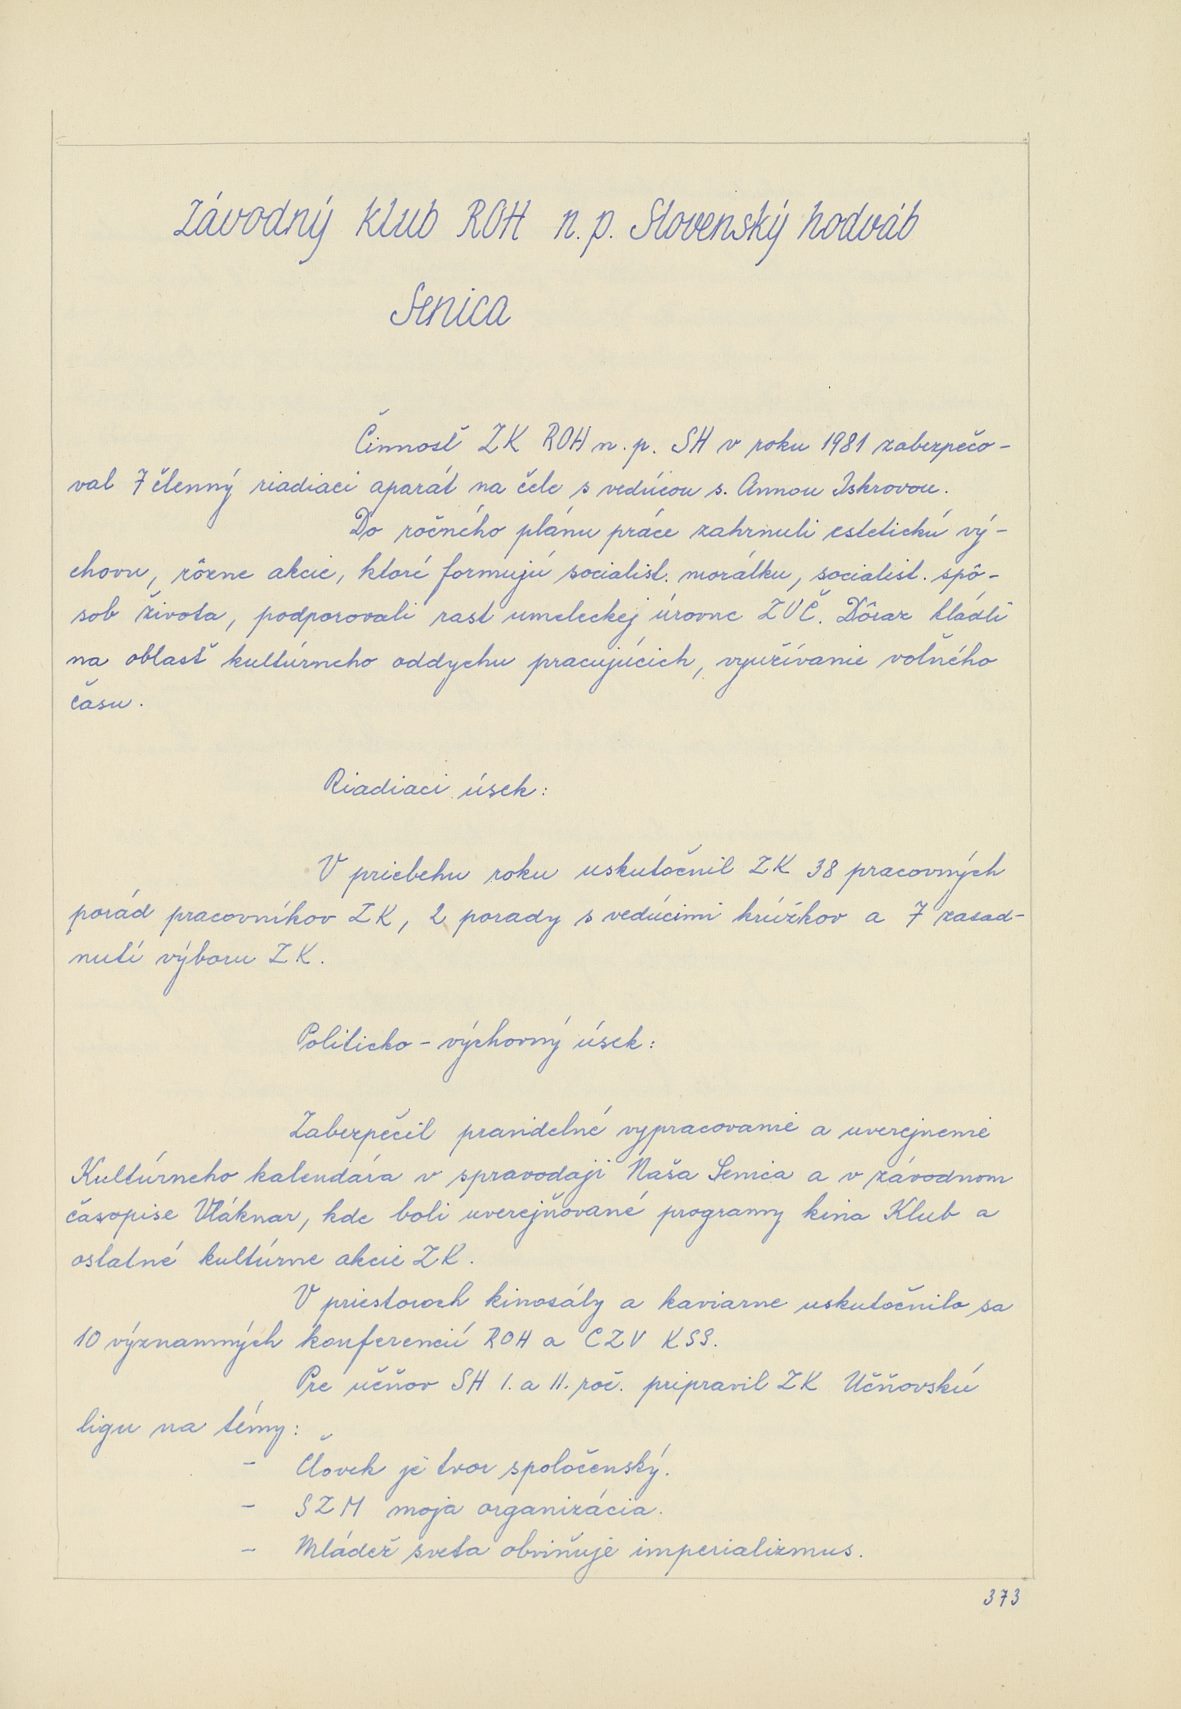 Závodný klub ROH n.p. Slovenský hodváb
Senica
Činnosť ZK ROH n.p. SH v roku 1981 zabezpečo-
val 7 členný riadiaci aparát na čele s vedúcou s. Annou Iskrovou.
Do ročného plánu práce zahrnuli estetickú vý-
chovu, rôzne akcie, ktoré formujú socialist. morálku, socialist. spô-
sob života, podporovali rast umeleckej úrovne ZUČ. Dôraz kládli
na oblasť kultúrneho oddychu pracujúcich, využívanie voľného
času.
Riadiaci úsek:
V priebehu roku uskutočnil ZK 38 pracovných
porád pracovníkov ZK, 2 porady s vedúcimi krúžkov a 7 zasad-
nutí výboru ZK.
Politicko-výchovný úsek:
Zabezpečil pravidelné vypracovanie a uverejnenie
Kultúrneho kalendára v spravodaji Naša Senica a v závodnom
časopise Vláknar, kde boli uverejňované programy kina Klub a
ostatné kultúrne akcie ZK.
V priestoroch kinosály a kaviarne uskutočnilo sa
10 významných konferencií ROH a CZV KSS.
Pre učňov SH I. a II. roč. pripravil ZK Učňovskú
ligu na témy:
- Človek je tvor spoločenský.
- SZM moja organizácia.
- Mládež sveta obviňuje imperializmus.
373